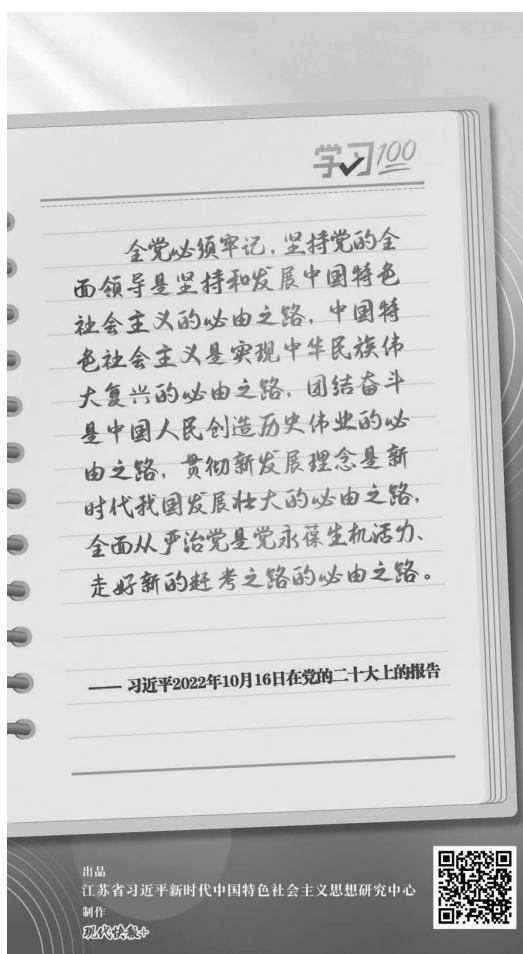 学习100
全党必须牢记，坚持党的全
面领导是坚持和发展中国特色
社会主义的必由之路，中国特
色社会主义是实现中华民族伟
大复兴的必由之路，团结奋斗
是中国人民创造历史伟业的必
由之路，贯彻新发展理念是新
时代我国发展壮大的必由之路，
全面从严治党是党永葆生机活力、
走好新的赶考之路的必由之路。
—— 习近平2022年10月16日在党的二十大上的报告
出品
江苏省习近平新时代中国特色社会主义思想研究中心
制作
现代快报+